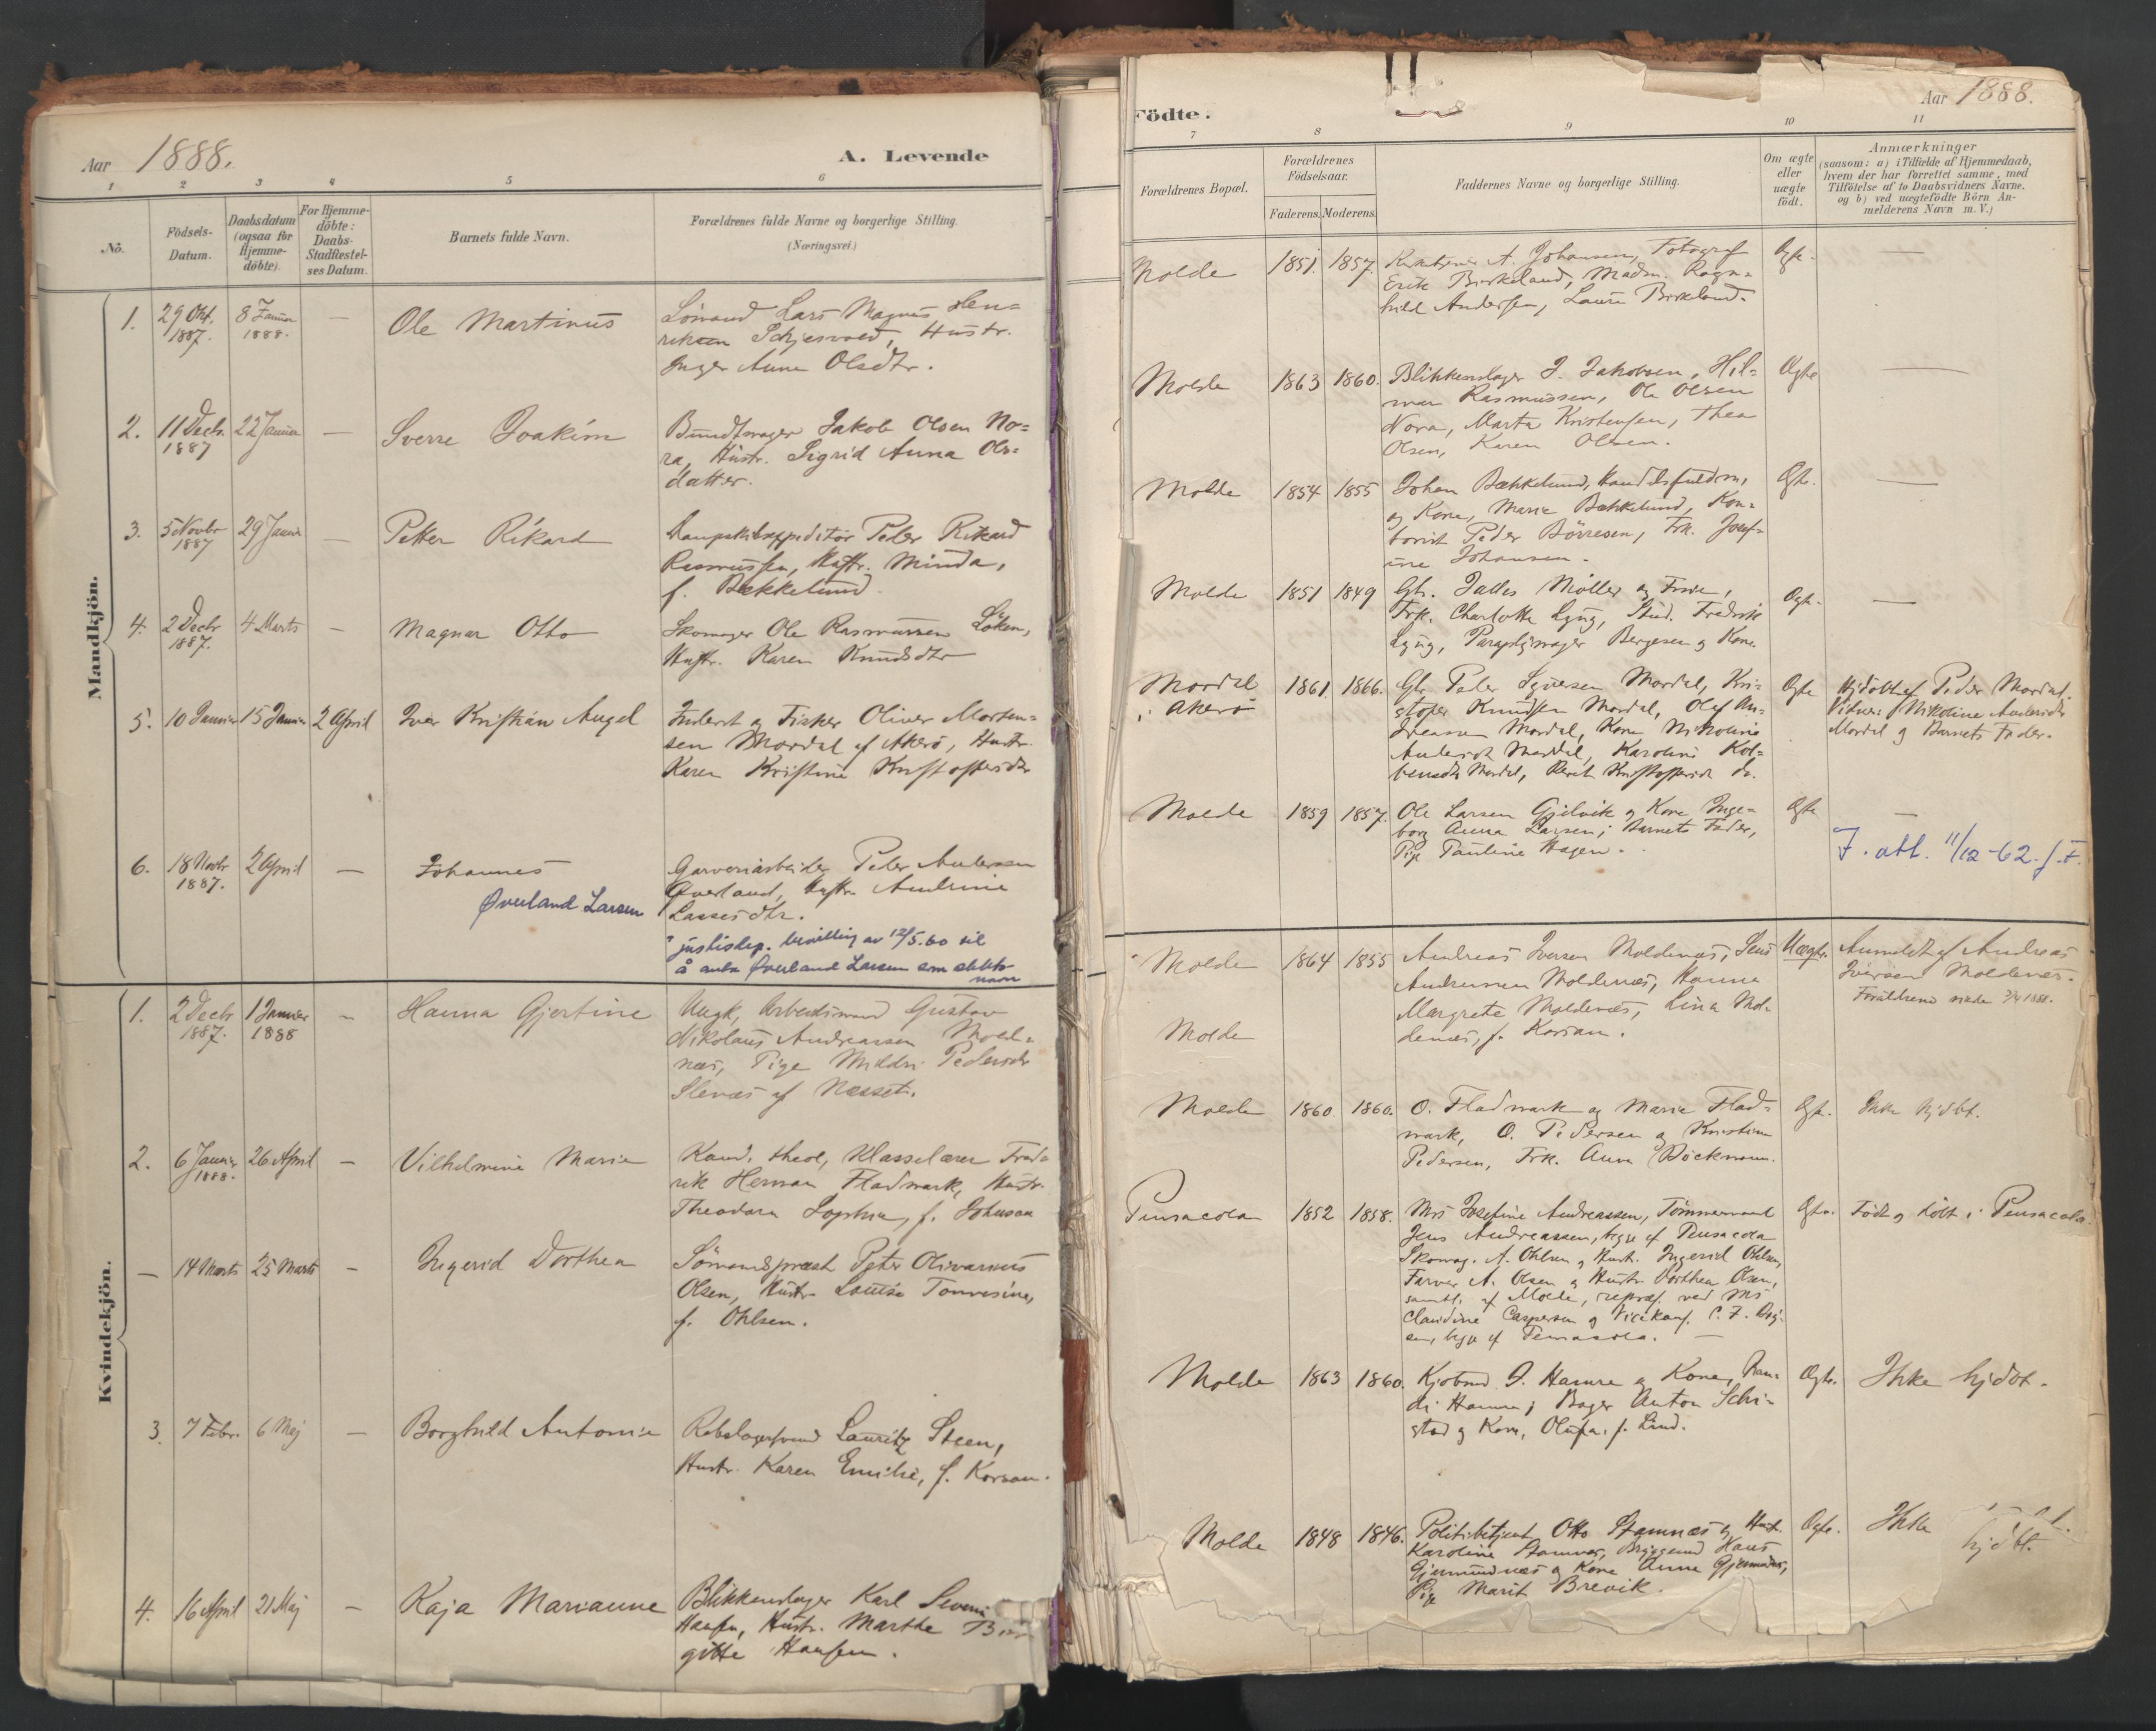 Aar 1888.
A. Levende
1 2 3 4 5 6
Nô.
Födsels-
Datum.
Daabsdatum
(ogsaa for
Hjemme-
döbte).
For Hjemme-
döbte:
Daabs-
Stadfæstel-
ses Datum.
Barnets fulde Navn.
Forældrenes fulde Navne og borgerlige Stilling.
(Næringsvei.)
Mandkjön.
1. 29 Okt. 1887. 8 Januar 1888. — Ole Martinus
Lars Magnus Hen-
riksen Hustr.
Inger Anna Olsdtr.
2. 11 Decbr. 1887 22 Januar — Sverre Joakim
Bundtmager Jakob Olsen No-
ra, Hustr. Sigrid Anna Ols-
datter.
3. 5 Novbr 1887 29 Januar — Petter Rikard
Peder Rikard
Rasmussen, Hustr. Minda,
f. Bækkelund.
4. 2 Decbr 1887. 4 Marts — Magnar Otto
Skomager Ole Rasmussen Löken,
Hustr. Karen Knudsdtr
5. 10 Januar 15 Januar 2 April Iver Kristian Angel
Inderst og Fisker Oliver Morten-
sen Mordal af Akerö, Hustr.
Karen Kristine Kristoffersdtr
6. 18 Novbr 1887. 2 April — Johannes
Øverland Larsen
Garveriarbeider Peder Andersen
Øverland, Hustr. Andrine
Lassesdtr.
justisdep. bevilling av 12/5.60 til
å anta Øverland Larsen som slekts-
navn
Kvindekjön.
1. 2 Decbr 1887. 1 Januar 1888 — Hanna Gjertine
Ungk. Arbeidsmand Gustav
Nikolaus Andreassen Mold-
næs, Pige Mildri Pedersdtr
Slenæs af Næsset.
2. 6 Januar 1888. 26 April — Vilhelmine Marie
Kand. theol, Klasselærer Fred-
rik Herman Fladmark, Hustr.
Theodora Sophia, f. Johnson
— 14 Marts 25 Marts — Ingerid Dorthea
Sömandspræst Peter Olivarius
Olsen, Hustr. Louise Tonnesine,
f. Ohlsen.
3. 7 Febr. 6 Maj — Borghild Antonie
Rebslagersvend Lauritz Steen,
Hustr. Karen Emilie, f. Korsan.
4. 16 April 21 Maj — Kaja Marianne
Blikkenslager Karl Severin
Hansen, Hustr. Marthe Bir
gitte Hansen.
Födte.
Aar 1888.
7 8 9 10 11
Forældrenes Bopæl.
Forældrenes
Födselsaar.
Faderens. Moderens.
Faddernes Navne og borgerlige Stilling.
Om ægte
eller
uægte
födt.
Anmærkninger
(saasom: a) i Tilfælde af Hjemmedaab,
hvem der har forrettet samme, med
Tilföielse af to Daabsvidners Navne.
og b) ved uægtefödte Börn An-
melderens Navn m. V.)
Molde 1851. 1857. A. Johansen, Fotograf
Erik Birkeland, Madm. Ragn-
hild Andersen, Laura Birkeland.
Ægte. —
Molde 1863 1860. Blikkenslager J. Jakobsen, Hil-
mar Rasmussen, Ole Olsen
Nora, Marta Kristensen, Thea
Olsen, Karen Olsen.
Ægte —
Molde 1854 1855 Johan Bækkelund, Handelsfuldm,
og Kone, Marie Bækkelund, Kon-
torist Peder Börresen, Frk. Josef-
ine Johansen.
Ægte. —
Molde 1851 1849 Gbr. Møller og Frue,
Frk. Charlotte Lyng, Stud. Fredrik
Lyng, Paraplymager Bergesen og Kone.
Ægte. —
Mordal
i Akerö
1861. 1866. Gbr. Peder Syversen Mordal, Kri-
stofer Knudsen Mordal, Olaf An-
dreassen Mordal, Kone Nikoline
Andersdt Mordal, Karoline Kol-
bensdt Mordal, Berit Kristoffersdt do.
Ægte
Hjdöbt af Peder Mordal.
Vidner: Nikoline Andersdtr
Mordal og Barnets Fader.
Molde 1859 1857. Ole Larsen Gjelvik og Kone Inge-
borg Anna Larsen; Barnets Fader,
Pige Pauline Hagen.
Ægte —
F. att. 11/12-62. J.F.
Molde 1864 1855 Andreas Iversen Moldenæs, Jens
Andreassen Moldenæs, Hanna
Margrete Moldenæs, Lina Mol-
denæs, f. Korsan.
Molde
Uægte.
Anmeldt af Andreas
Iversen Moldenæs.
1888.
Molde 1860 1860. O. Fladmark og Marie Flad-
mark, O. Pedersen og Kristine
Pedersen, Frk. Anna Böckmann.
Ægt. Ikke hjdbt.
Pensacola 1852 1858. Mrs Josefine Andreassen, Tømmermand
Jens Andreassen, begge af Pensacola
Skomag. A. Ohlsen og Hustr. Ingerid Ohlsen,
Farver A. Olsen og Hustr. Dorthea Olsen,
samtl. af Molde, repræs. ved Mrs
Claudine Caspersen og Vicekons.
begge af Pensacola. —
Ægte. Födt og döbt i Pensacola.
Molde 1863 1860. Kjøbmd J. Hamre og Kone, Ran-
di Hamre; Bager Anton Schi-
stad og Kone, Olufa, f. Lind.
Ægte. Ikke hjdbt.
Molde 1848 1846. Politibetjent Otto Stamnæs og Hust.
Karoline Stamnæs, Hans
Gjermundnæs og Kone Anne Gjermundnæs,
Pige Marit Brevik.
Ægte. Ikke hjdbt.